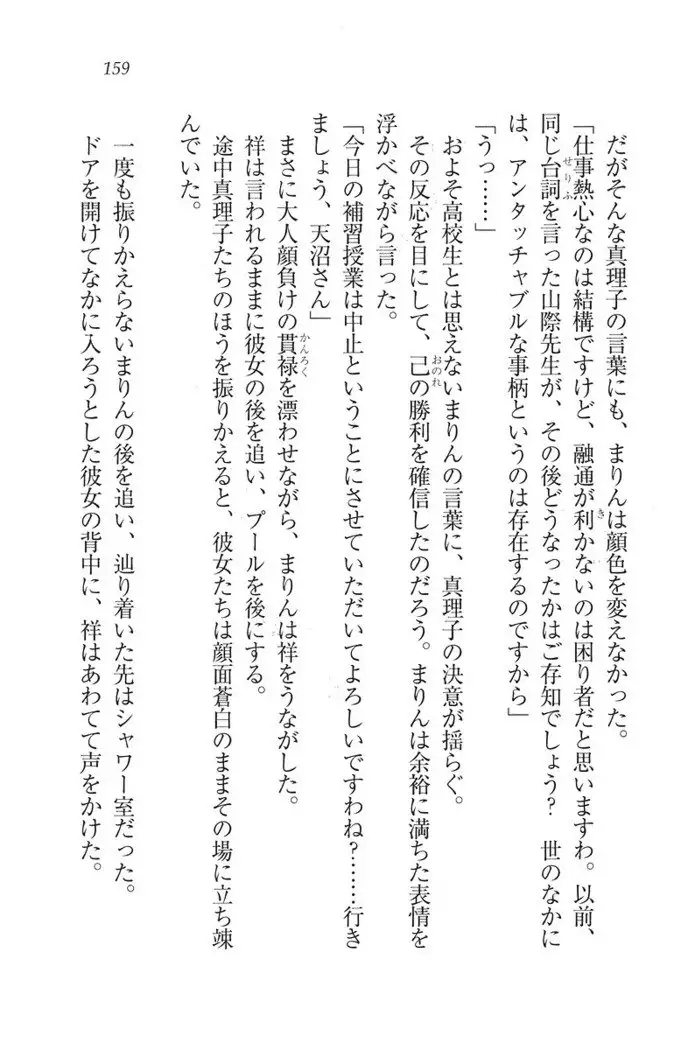 159
だがそんな真理子の言葉にも、まりんは顔色を変えなかった。
「仕事熱心なのは結構ですけど、融通が利かないのは困り者だと思いますわ。以前、
同じ台詞を言った山際先生が、その後どうなったかはご存知でしょう？　世のなかに
は、アンタッチャブルな事柄というのは存在するのですから」
「うっ……」
およそ高校生とは思えないまりんの言葉に、真理子の決意が揺らぐ。
その反応を目にして、己の勝利を確信したのだろう。まりんは余裕に満ちた表情を
浮かべながら言った。
「今日の補習授業は中止ということにさせていただいてよろしいですわね？……行き
ましょう、天沼さん」
まさに大人顔負けの貫禄を漂わせながら、まりんは祥をうながした。
祥は言われるままに彼女の後を追い、プールを後にする。
途中真理子たちのほうを振りかえると、彼女たちは顔面蒼白のままその場に立ち竦
んでいた。
一度も振りかえらないまりんの後を追い、辿り着いた先はシャワー室だった。
ドアを開けてなかに入ろうとした彼女の背中に、祥はあわてて声をかけた。